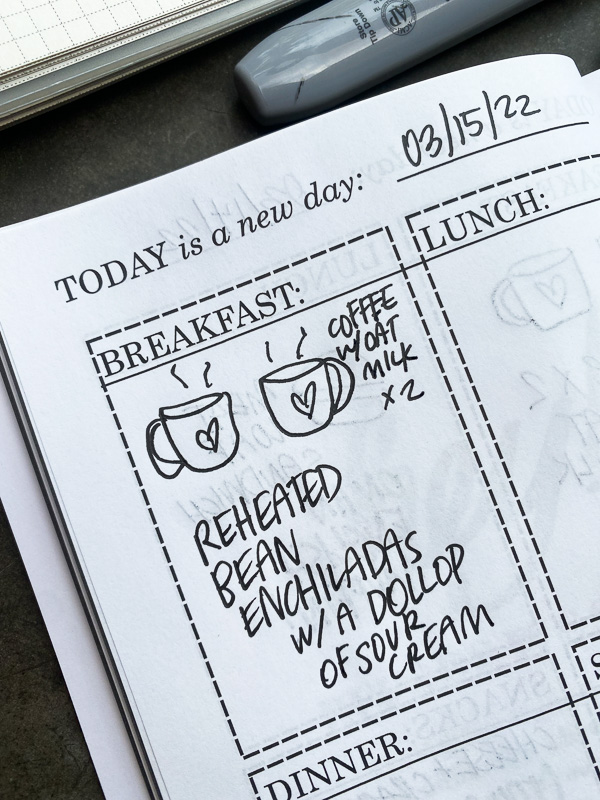 Store
Tip Down
AP
TODAY is a new day: 03/15/22
BREAKFAST:
COFFEE
W/ OAT
MILK
x2
REHEATED
BEAN
ENCHILADAS
W/ A DOLLOP
OF SOUR
CREAM
LUNCH:
DINNER:
S